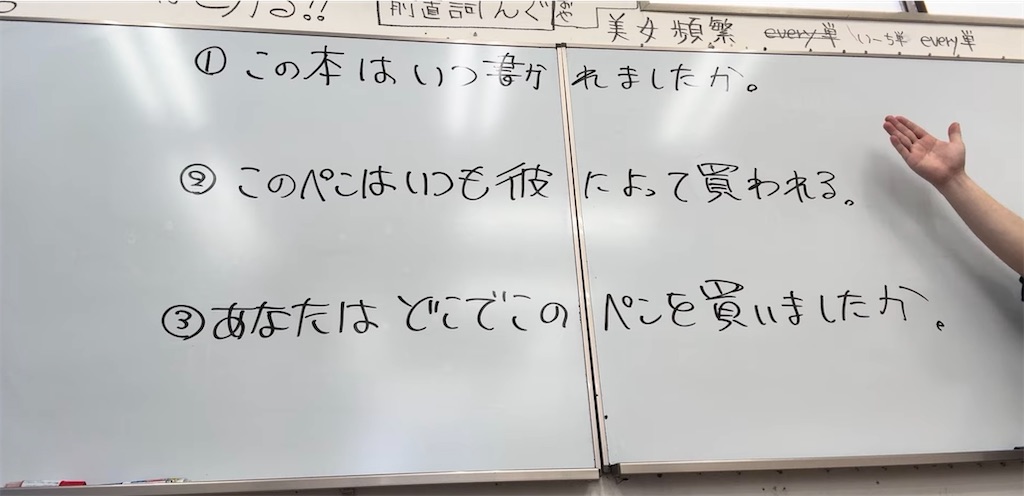 前置詞んぐ
美女頻繁 every単 いーち単 every単
① この本はいつ書かれましたか。
② このペンはいつも彼によって買われる。
③ あなたはどこでこのペンを買いましたか。